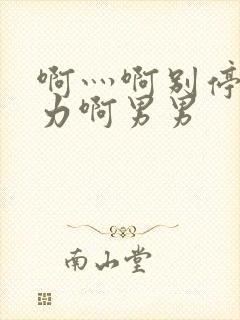 啊灬啊别停
力啊男男
南山堂